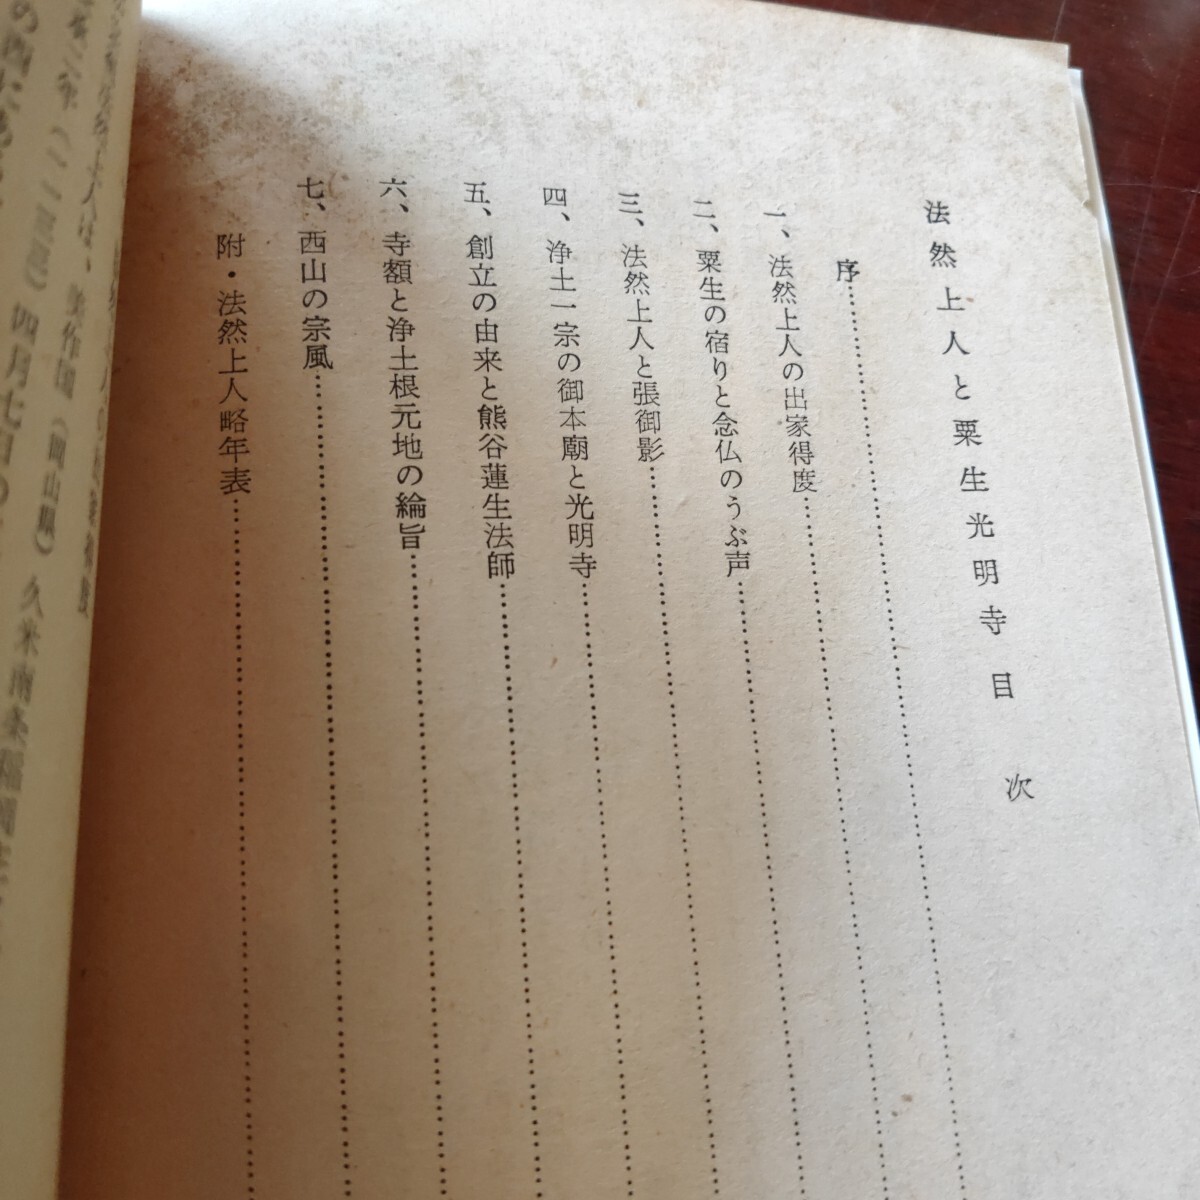 法然上人と粟生光明寺 目次
序……………………
一、法然上人の出家得度……………………
二、粟生の宿りと念仏のうぶ声……………………
三、法然上人と張御影……………………
四、浄土一宗の御本廟と光明寺……………………
五、創立の由来と熊谷蓮生法師……………………
六、寺額と浄土根元地の綸旨……………………
七、西山の宗風……………………
附・法然上人略年表……………………
人は、美作国（岡山県）久米南条稲岡
四月七日の